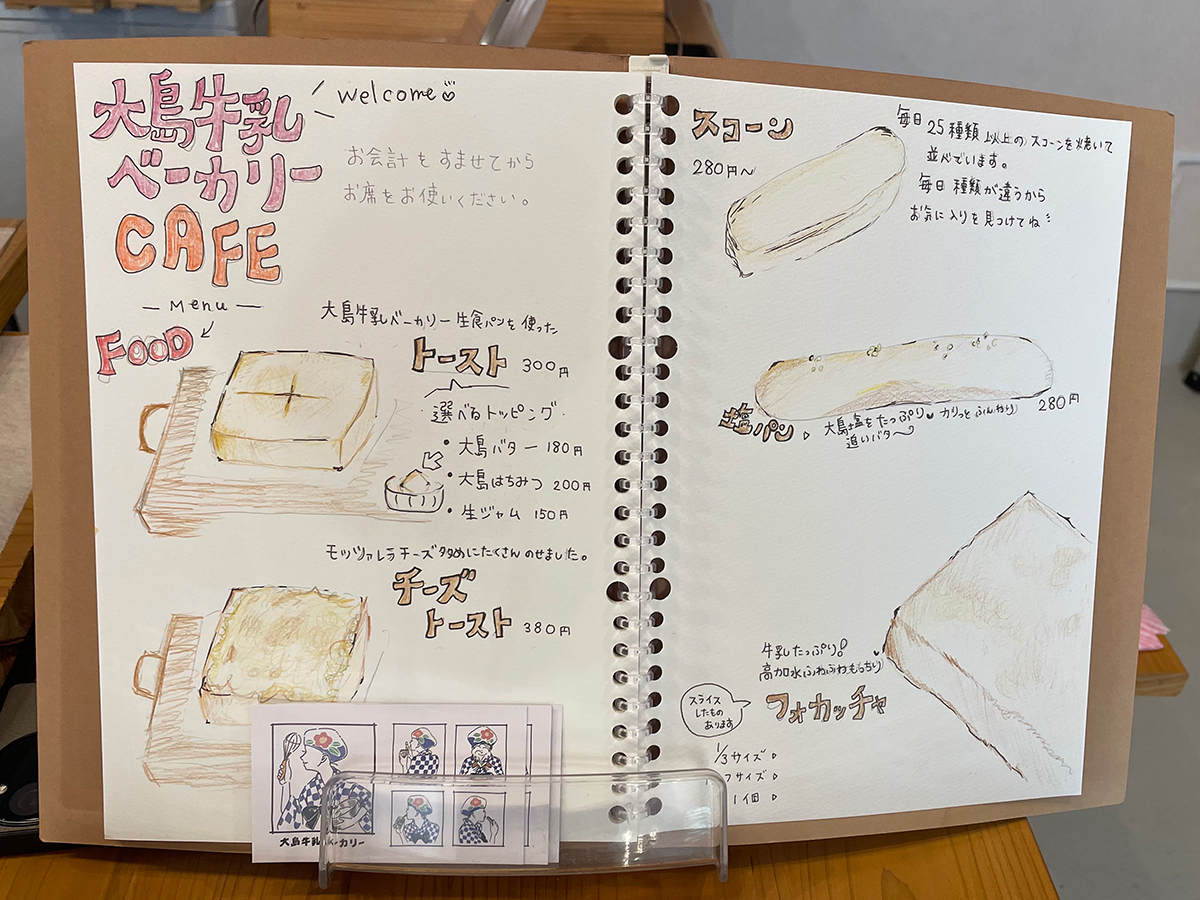 大島牛乳
ベーカリー
CAFE
welcome
お会計をすませてから
お席をお使いください。
— Menu —
FOOD
大島牛乳ベーカリー生食パンを使った
トースト 300円
選べるトッピング
・大島バター 180円
・大島はちみつ 200円
・生ジャム 150円
モッツァレラチーズ多めにたくさんのせました。
チーズ
トースト 380円
大島牛乳ベーカリー
スコーン
280円〜
毎日25種類以上のスコーンを焼いて
並べています。
毎日種類が違うから
お気に入りを見つけてね
塩パン
大島塩をたっぷり カリっとふんわり
追いバター
280円
牛乳たっぷり!
高加水ふわふわもっちり
フォカッチャ
スライス
したもの
あります
1/3サイズ
サイズ
1個